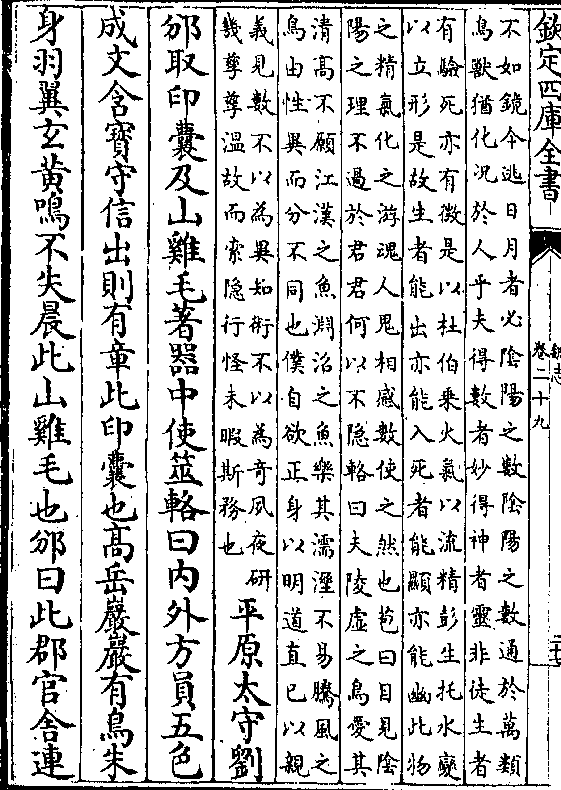 欽定四庫全書
魏志
卷二十九
不如鏡今逃日月者必陰陽之數陰陽之數通於萬類
鳥獸猶化況於人乎夫得數者妙得神者靈非徒生者
有驗死亦有徴是以杜伯乗火氣以流精彭生托水變
以立形是故生者能出亦能入死者能顯亦能幽此物
之精氣化之游魂人鬼相感數使之然也苞曰目見陰
陽之理不過於君君何以不隐輅曰夫陵虚之鳥愛其
清髙不願江漢之魚淵沼之魚樂其濡溼不易騰風之
鳥由性異而分不同也僕自欲正身以明道直已以親
義見數不以為異知術不以為奇夙夜研
幾孳孳温故而索隐行怪未暇斯務也
平原太守劉
邠取印囊及山雞毛著器中使筮輅曰内外方員五色
成文含寳守信出則有章此印囊也髙岳巖巖有鳥朱
身羽翼玄黄鳴不失晨此山雞毛也邠曰此郡官舍連